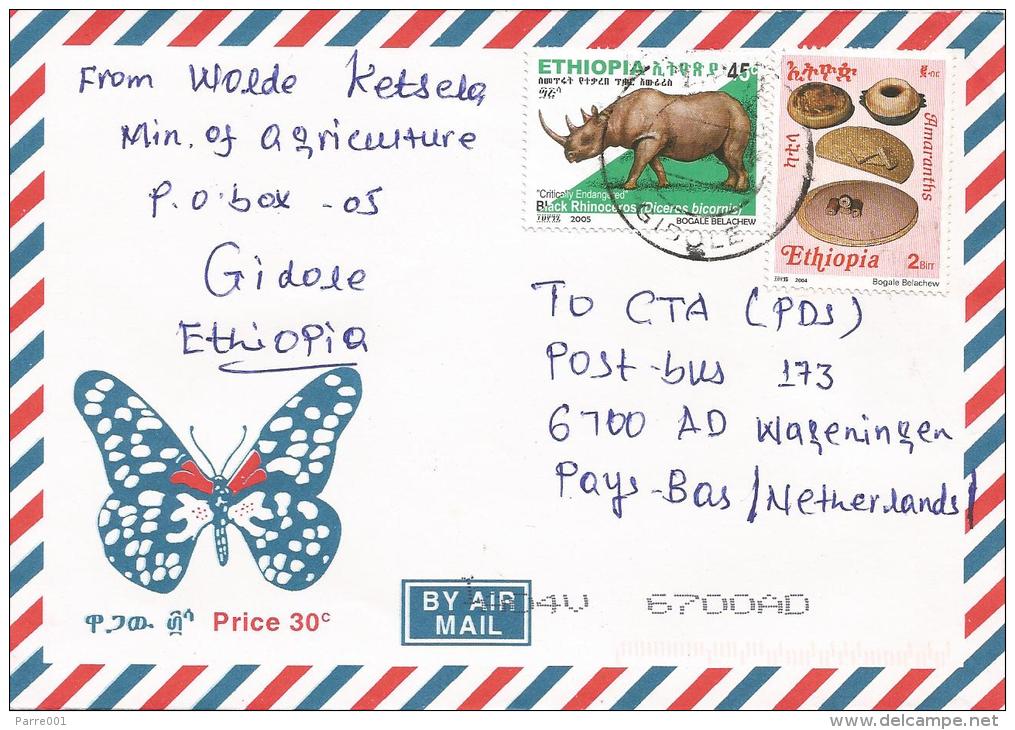 From Wolde Ketsela
Min. of agriculture
P.o.box - 05
Gidole
Ethiopia
ETHIOPIA ኢትዮጵያ 45c
"Critically Endangered"
Black Rhinoceros (Diceros bicornis)
2005 BOGALE BELACHEW
ኢትዮጵያ
Amaranths
Ethiopia 2 Birr
2004 Bogale Belachew
GIDOLE
To CTA (PDS)
Post-bus 173
6700 AD Wageningen
Pays-Bas /Netherlands/
ዋጋው ፴ሳ Price 30c
BY AIR
MAIL
6700AD
Parre001
www.delcampe.net